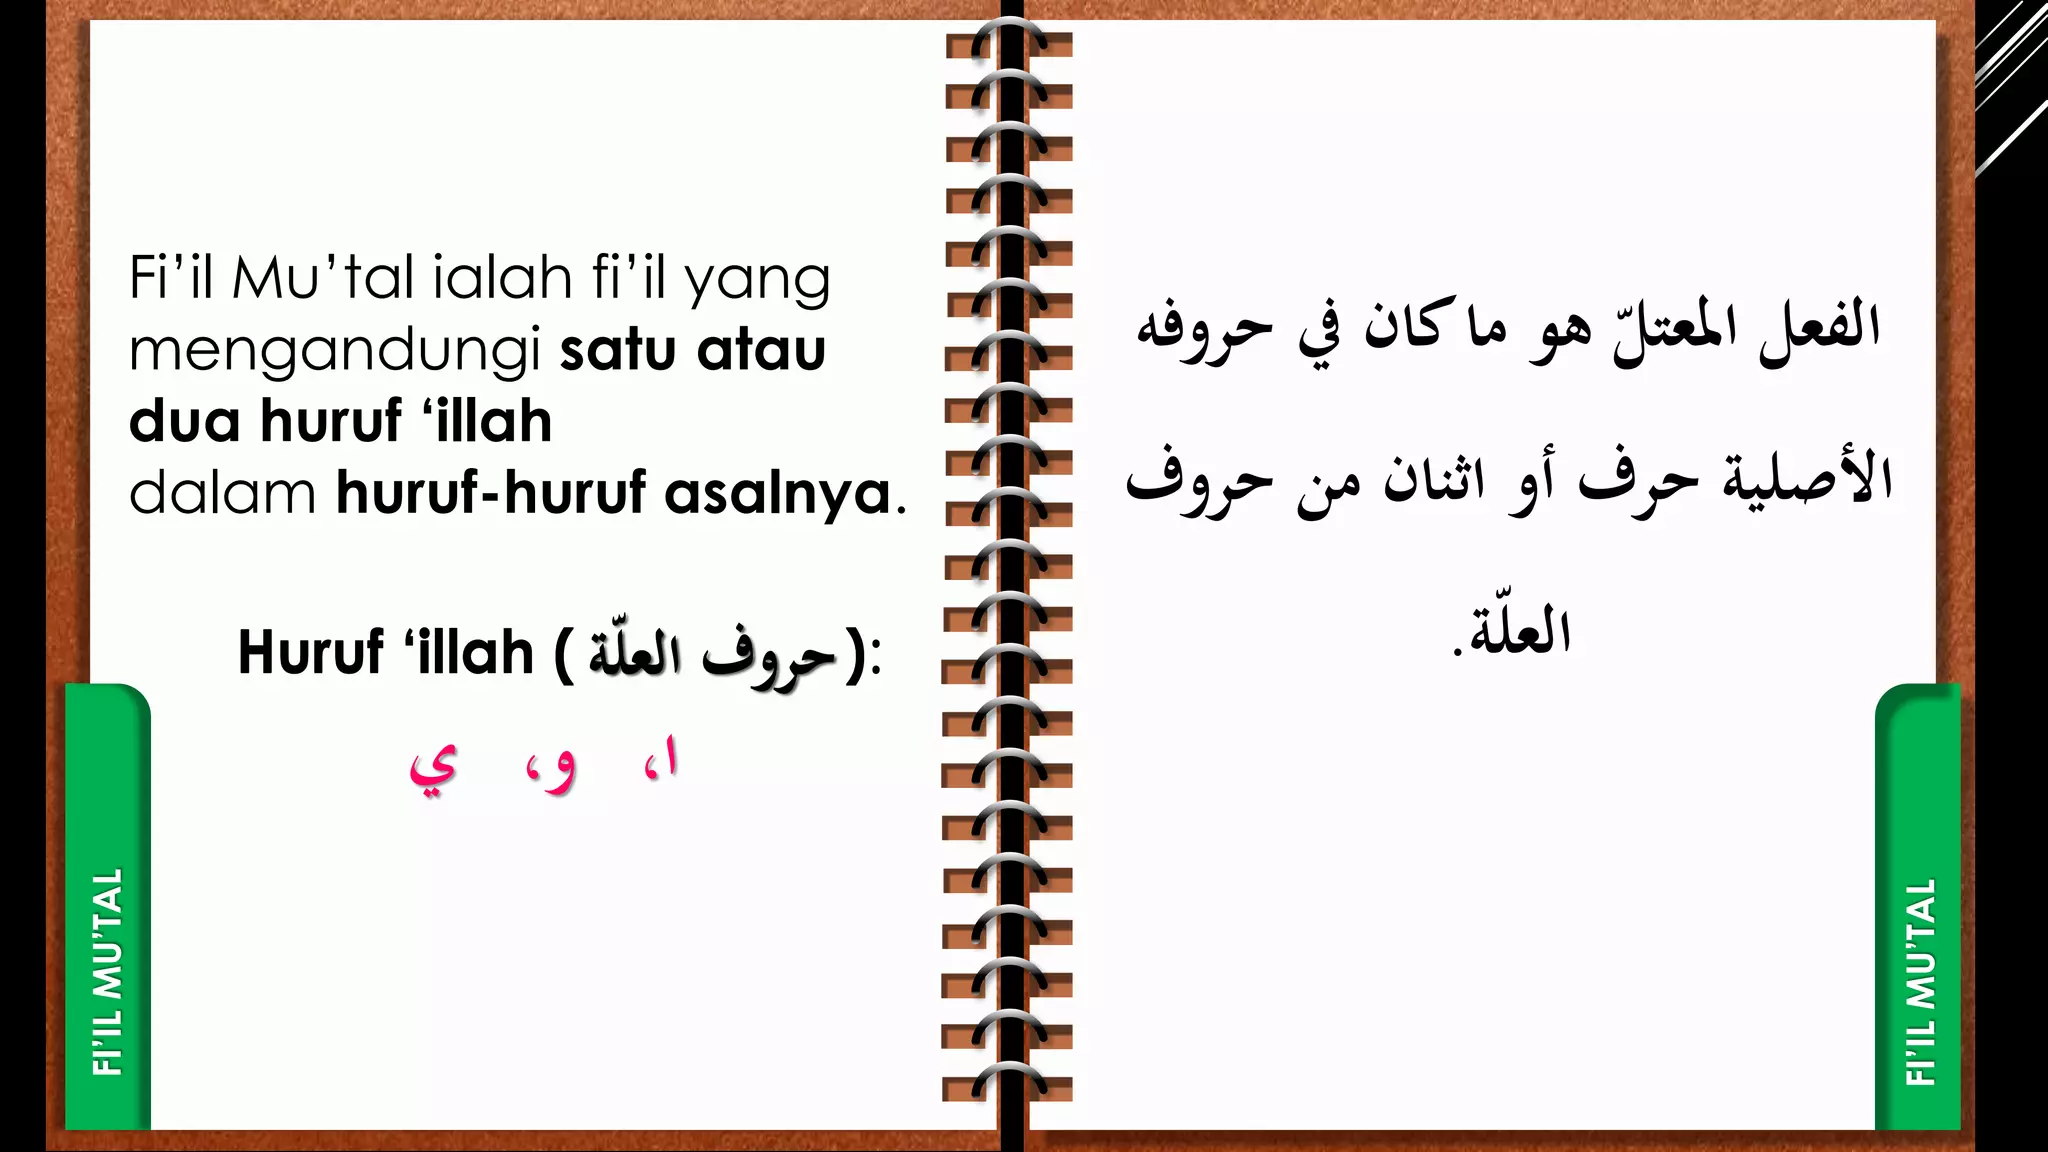 Fi’il Mu’tal ialah fi’il yang
mengandungi satu atau
dua huruf ‘illah
dalam huruf-huruf asalnya.
Huruf ‘illah (حروف العلّة):
ا، و، ي
FI’IL MU’TAL
الفعل المعتلّ هو ما كان في حروفه
الأصلية حرف أو اثنان من حروف
العلّة.
FI’IL MU’TAL